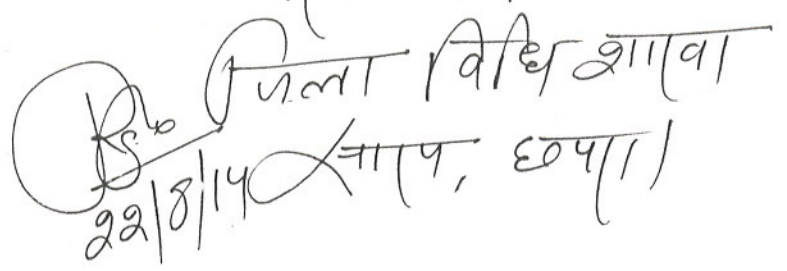 जिला विधि शाखा
22/8/14 सारण, छपरा।